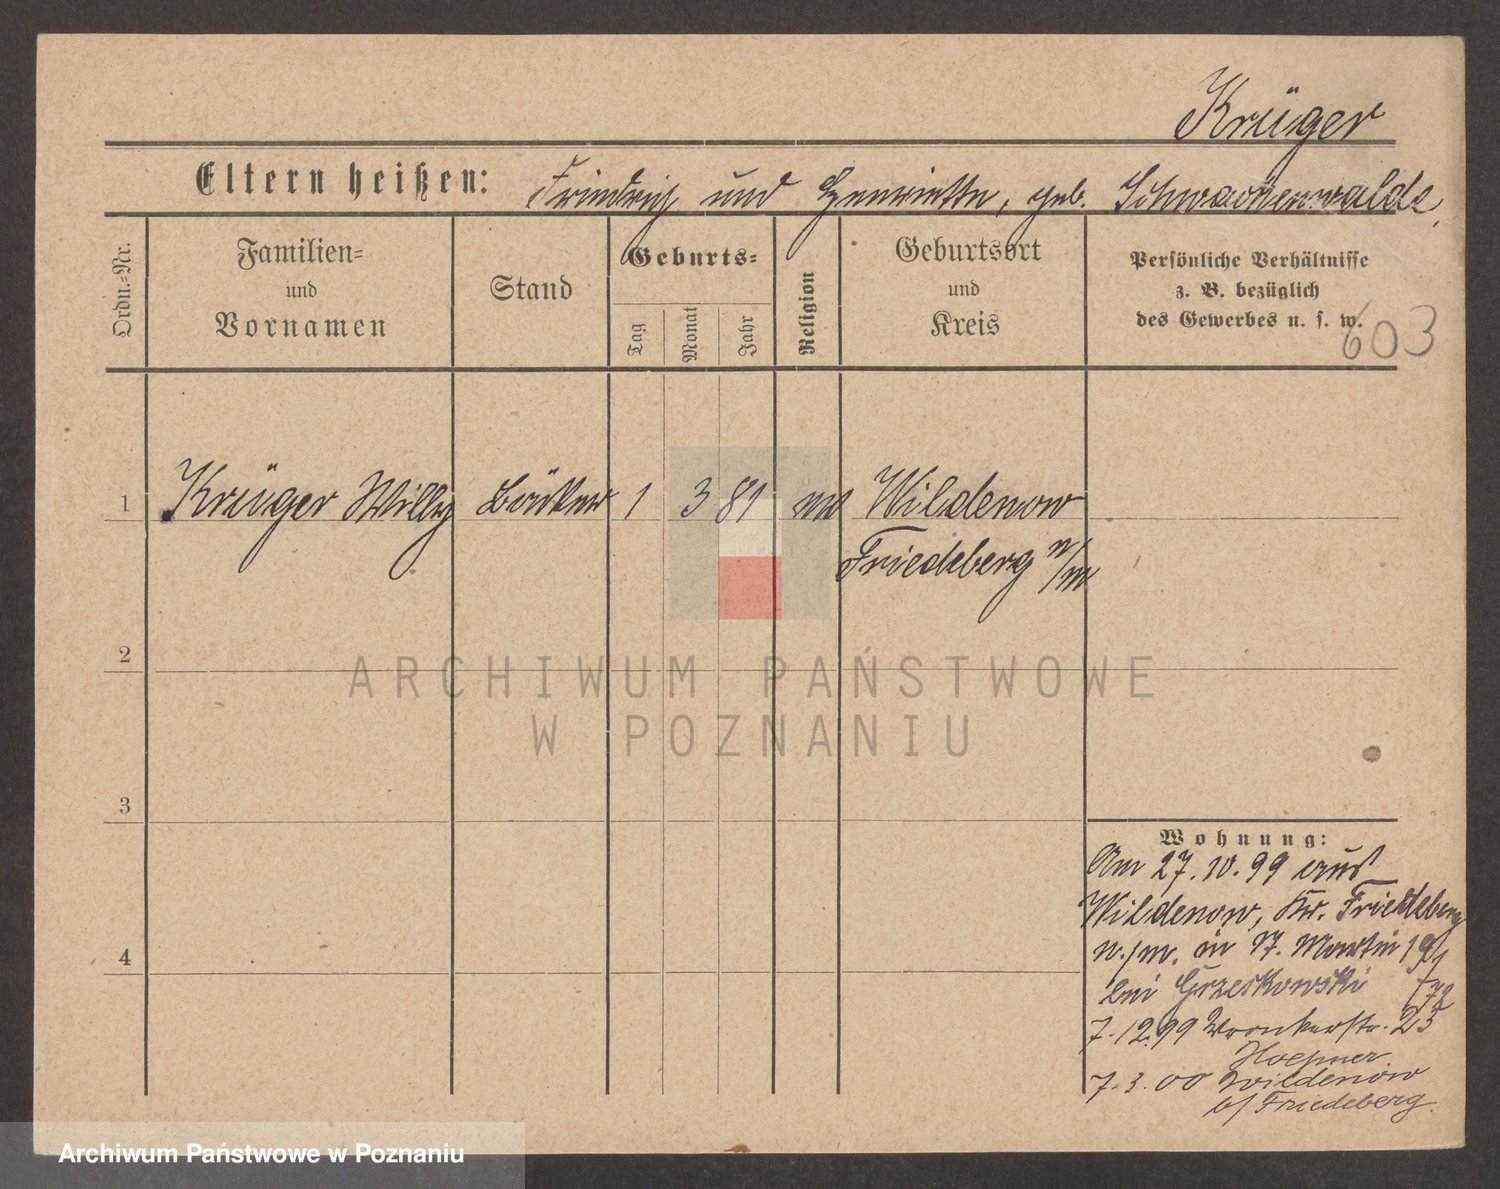 Krüger
Eltern heißen: Friedrich und Henriette, geb.
Ordn.-Nr.
Familien-
und
Vornamen
Stand
Geburts-
Tag
Monat
Jahr
Religion
Geburtsort
und
Kreis
Persönliche Verhältnisse
z. B. bezüglich
des Gewerbes u. s. w.
603
1 Krüger Willy Bäcker 1 3 81 Wildenow
Friedeberg n/m
2
3
4
Wohnung:
Am 27.10.99 aus
Wildenow, Kr. Friedeberg
n./m. in St. Martin
bei Grzeskowski
7.12.99 Wronkerstr. 23
7.3.00 Wildenow
b/ Friedeberg.
ARCHIWUM PAŃSTWOWE
W POZNANIU
Archiwum Państwowe w Poznaniu